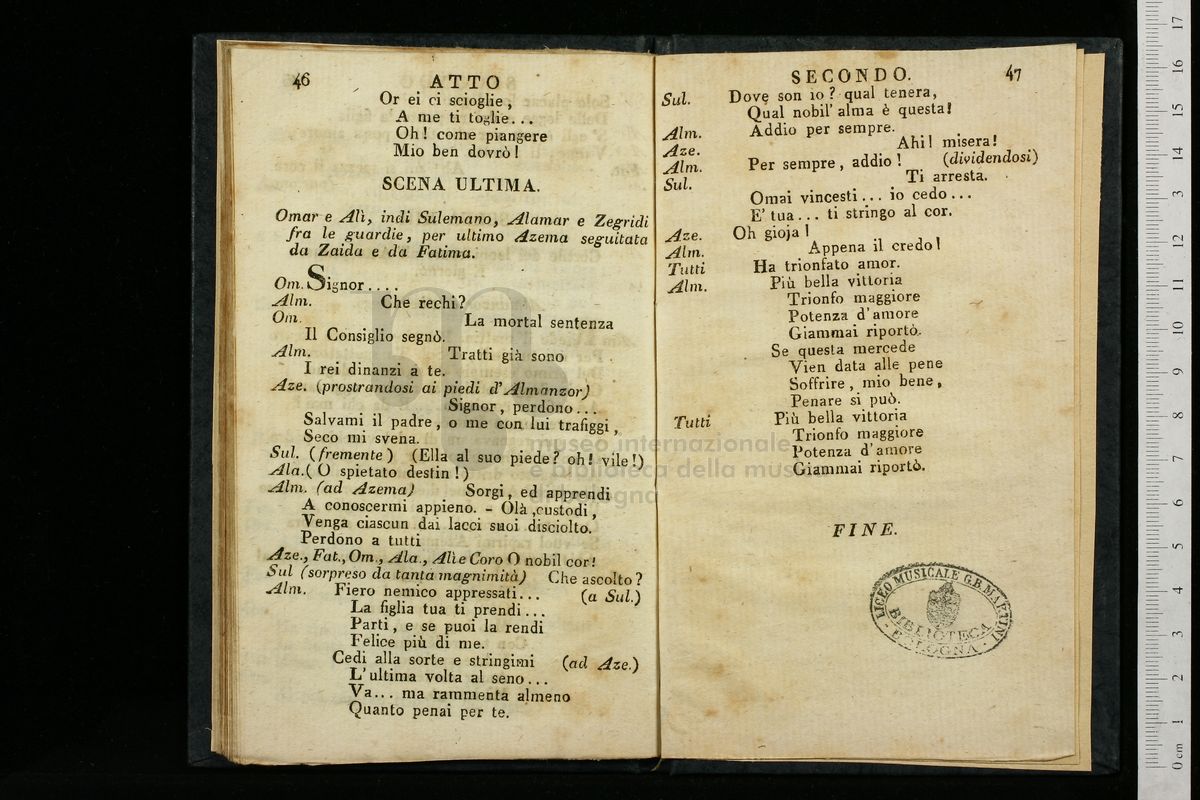 46
ATTO
Or ei ci scioglie,
A me ti toglie...
Oh! come piangere
Mio ben dovrò!
SCENA ULTIMA.
Omar e Alì, indi Sulemano, Alamar e Zegridi
fra le guardie, per ultimo Azema seguitata
da Zaida e da Fatima.
Om. Signor....
Alm. Che rechi?
Om. La mortal sentenza
Il Consiglio segnò.
Alm. Tratti già sono
I rei dinanzi a te.
Aze. (prostrandosi ai piedi d'Almanzor)
Signor, perdono...
Salvami il padre, o me con lui trafiggi,
Seco mi svena.
Sul. (fremente) (Ella al suo piede? oh! vile!)
Ala. (O spietato destin!)
Alm. (ad Azema) Sorgi, ed apprendi
A conoscermi appieno. - Olà, custodi,
Venga ciascun dai lacci suoi disciolto.
Perdono a tutti
Aze., Fat., Om., Ala., Alì e Coro O nobil cor!
Sul (sorpreso da tanta magnimità) Che ascolto?
Alm. Fiero nemico appressati... (a Sul.)
La figlia tua ti prendi...
Parti, e se puoi la rendi
Felice più di me.
Cedi alla sorte e stringimi (ad Aze.)
L'ultima volta al seno...
Va... ma rammenta almeno
Quanto penai per te.
SECONDO. 47
Sul. Dove son io? qual tenera,
Qual nobil' alma è questa!
Alm. Addio per sempre.
Aze. Ahi! misera!
Alm. Per sempre, addio! (dividendosi)
Sul. Ti arresta.
Omai vincesti... io cedo...
E' tua... ti stringo al cor.
Aze. Oh gioja!
Alm. Appena il credo!
Tutti Ha trionfato amor.
Alm. Più bella vittoria
Trionfo maggiore
Potenza d'amore
Giammai riportò.
Se questa mercede
Vien data alle pene
Soffrire, mio bene,
Penare si può.
Tutti Più bella vittoria
Trionfo maggiore
Potenza d'amore
Giammai riportò.
FINE.
LICEO MUSICALE G.B. MARTINI
BIBLIOTECA
- BOLOGNA -
museo internazionale
e biblioteca della musica
di bologna
0 cm 1 2 3 4 5 6 7 8 9 10 11 12 13 14 15 16 17